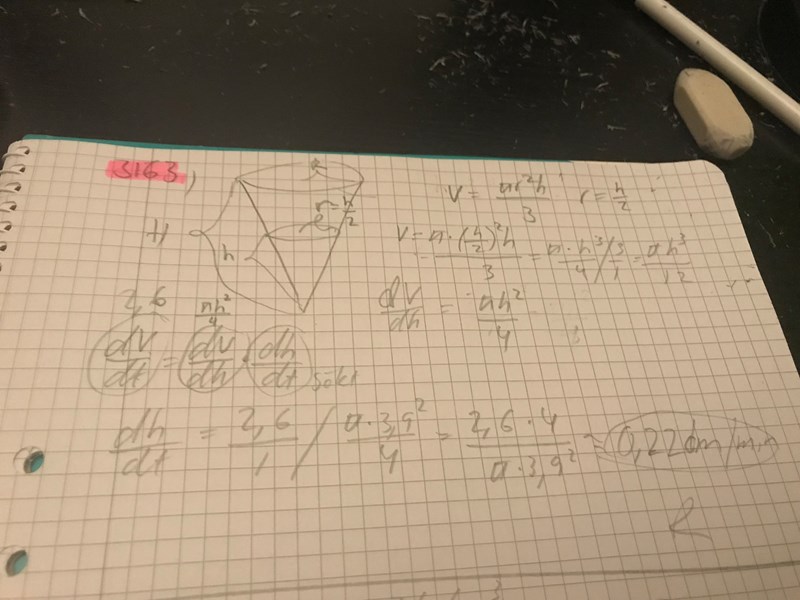 3163)
R
H
h
r = h/2
V = πr²h/3 r = h/2
V = π·(h/2)²h/3 = π·h³/4 / 3/1 = πh³/12
dV/dh = πh²/4
2,6 πh²/4
dV/dt = dV/dh · dh/dt sökt
dh/dt = 2,6/1 / π·3,9²/4 = 2,6·4/π·3,9² = 0,22 dm/min
R